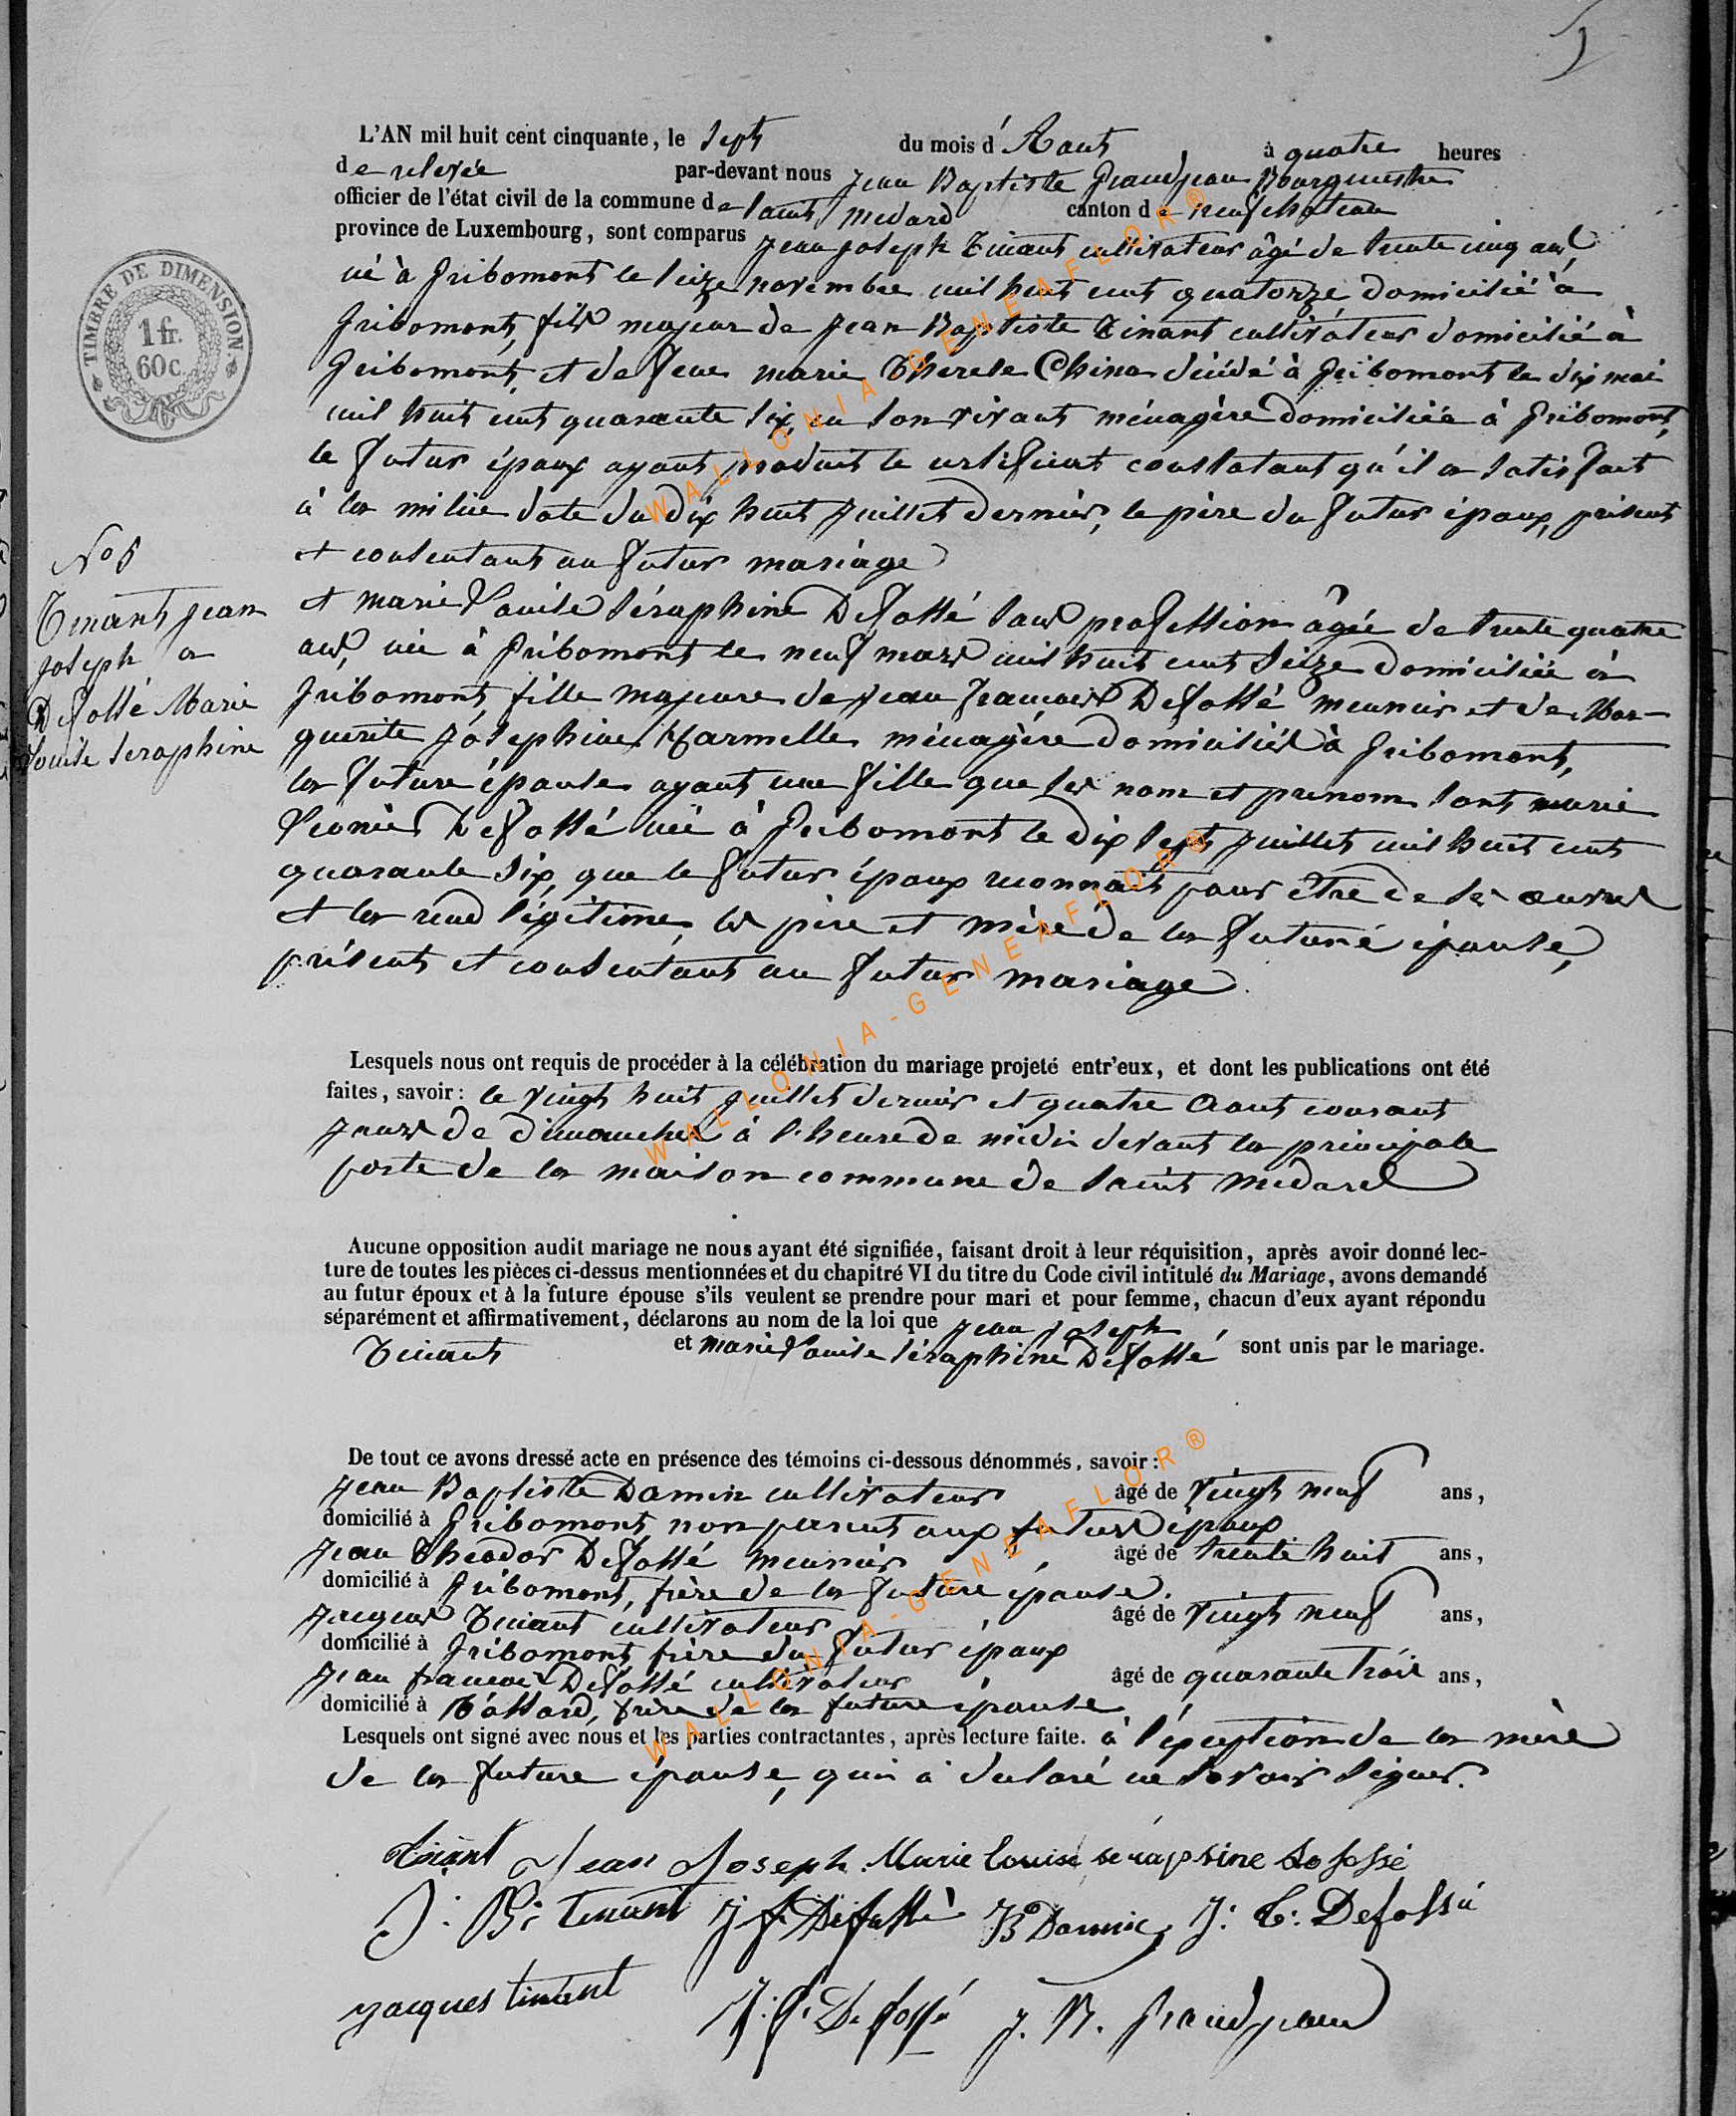 L'AN mil huit cent cinquante, le sept du mois d'Aout à quatre heures
de relevée par-devant nous Jean Baptiste Grandjean Bourguestre
officier de l'état civil de la commune de saint medard canton de neufchateau
province de Luxembourg, sont comparus Jean joseph Tinant cultivateur âgé de trente cinq ans,
né à fribomont le seize novembre mil huit cent quatorze domicilié à
fribomont, fils majeur de Jean Baptiste Tinant cultivateur domicilié à
fribomont, et de feue marie Therese China décédé à fribomont le dix mai
mil huit cent quarante six, en son vivant ménagère domiciliée à fribomont,
le futur époux ayant produit le certificat constatant qu'il a satisfait
à la milice date du dix huit juillet dernier, le père du futur époux, présent
et consentant au futur mariage
et marie Louise Séraphine Defossé sans profession âgée de trente quatre
ans, née à fribomont le neuf mars mil huit cent seize domiciliée à
fribomont, fille majeure de Jean françois Defossé meunier et de Mar-
guerite Joséphine ménagère domiciliés à fribomont,
la future épouse ayant une fille que ses nom et prenom sont marie
Leonie Defossé née à fribomont le dix sept juillet mil huit cent
quarante six, que le futur époux reconnait pour être de ses œuvres
et la rend légitime, les père et mère de la future épouse,
présents et consentant au futur mariage
TIMBRE DE DIMENSION
1 fr.
60 c.
No 5
Tinant Jean
Joseph a
Defossé Marie
Louise Seraphine
Lesquels nous ont requis de procéder à la célébration du mariage projeté entr'eux, et dont les publications ont été
faites, savoir: le vingt huit juillet dernier et quatre Aout courant
jours de dimanches à l'heure de midi devant la principale
porte de la maison commune de saint medard
Aucune opposition audit mariage ne nous ayant été signifiée, faisant droit à leur réquisition, après avoir donné lec-
ture de toutes les pièces ci-dessus mentionnées et du chapitré VI du titre du Code civil intitulé du Mariage, avons demandé
au futur époux et à la future épouse s'ils veulent se prendre pour mari et pour femme, chacun d'eux ayant répondu
séparément et affirmativement, déclarons au nom de la loi que Jean Joseph
Tinant et marie Louise Séraphine Defossé sont unis par le mariage.
De tout ce avons dressé acte en présence des témoins ci-dessous dénommés, savoir:
Jean Baptiste Damin cultivateur âgé de vingt neuf ans,
domicilié à fribomont, non parent aux futurs époux
Jean Theodor Defossé meunier âgé de trente huit ans,
domicilié à fribomont, frère de la future épouse.
Jacques Tinant cultivateur âgé de vingt neuf ans,
domicilié à fribomont, frère du futur époux
Jean francois Defossé cultivateur âgé de quarante trois ans,
domicilié à frère de la future épouse
Lesquels ont signé avec nous et les parties contractantes, après lecture faite. à l'éxception de la mère
de la future épouse, qui a déclaré ne savoir signer.
tinant Jean Joseph Marie Louise seraphine Defossé
J: B: tinant J f Defossé JB Damin J: T: Defossé
jacques tinant J: f: Defossé J. B. Grandjean
WALLONIA-GENEAFLOR®
WALLONIA-GENEAFLOR®
WALLONIA-GENEAFLOR®